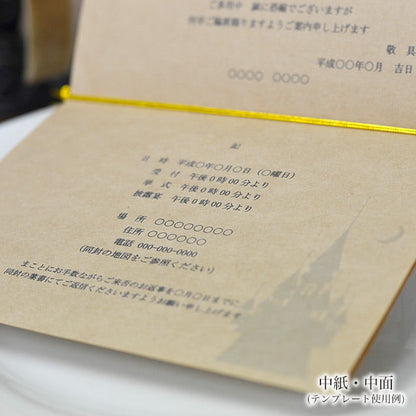 ご多用中 誠に恐縮でございますが
何卒ご臨席賜りますようご案内申し上げます
敬具
平成〇〇年〇月 吉日
〇〇〇〇 〇〇〇〇
記
日時 平成〇年〇月〇日（〇曜日）
受付 午後0時00分より
挙式 午後0時00分より
披露宴 午後0時00分より
場所 〇〇〇〇〇〇〇〇
住所 〇〇〇〇〇〇
電話 000-000-0000
(同封の地図をご参照ください)
まことにお手数ながらご来否のお返事を〇月〇日までに
同封の葉書にてご返信くださいますようお願い申し上げます
中紙・中面
(テンプレート使用例)